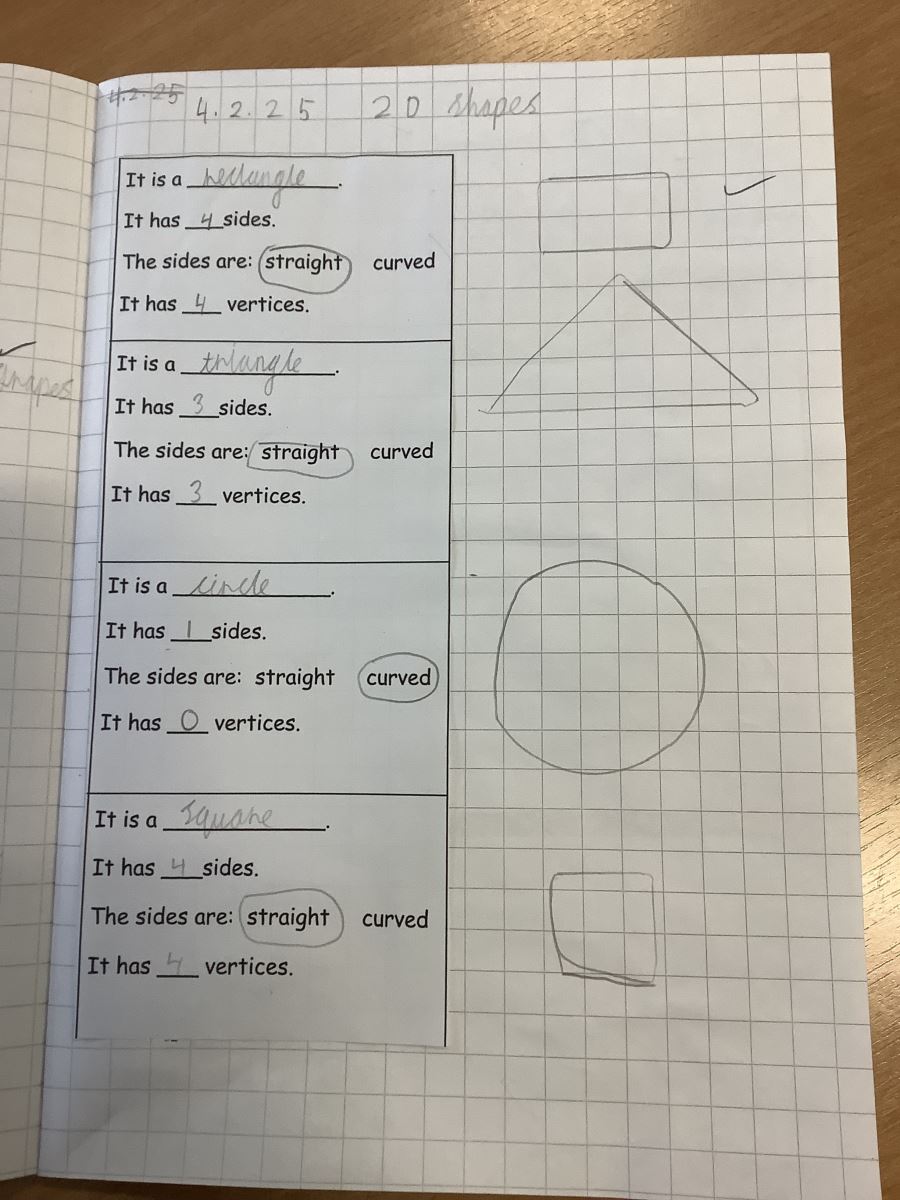 4.2.25
4.2.25 2D shapes
It is a rectangle.
It has 4 sides.
The sides are: straight curved
It has 4 vertices.
It is a triangle.
It has 3 sides.
The sides are: straight curved
It has 3 vertices.
It is a circle.
It has 1 sides.
The sides are: straight curved
It has 0 vertices.
It is a square.
It has 4 sides.
The sides are: straight curved
It has 4 vertices.